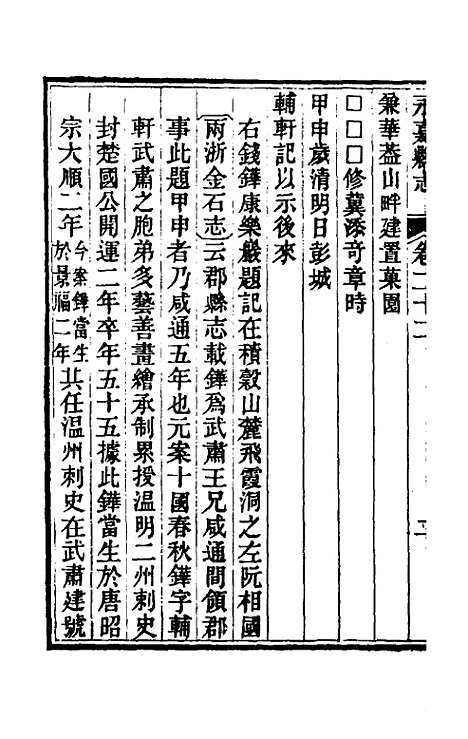 永嘉縣志 卷二十二
兼華葢山畔建置菓園
□□□修葺添竒章時
甲申歲清明日彭城
輔軒記以示後來
右錢鏵康樂巖題記在積穀山麓飛霞洞之左阮相國
兩浙金石志云郡縣志載鏵爲武肅王兄咸通間領郡
事此題甲申者乃咸通五年也元案十國春秋鏵字輔
軒武肅之胞弟多藝善畫繪承制累授温明二州刺史
封楚國公開運二年卒年五十五據此鏵當生於唐昭
宗大順二年今案鏵當生於景福二年其任温州刺史在武肅建號